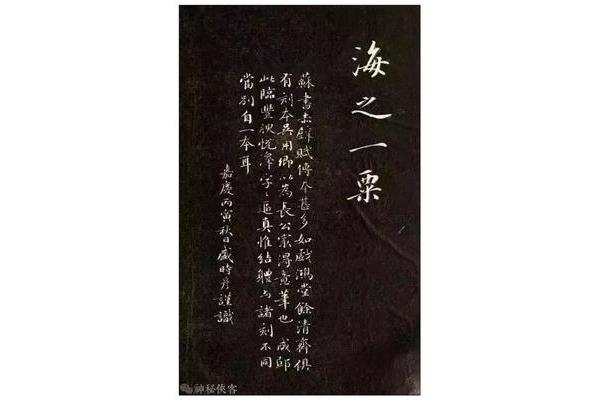 海之一粟
蘇書赤壁賦傳本甚多如戲鴻堂餘清齋俱
有刻本吳用卿以為長公㝡得意筆也成邸
此臨豐腴悅澤字〻逼真惟結體与諸刻不同
當別自一本耳
嘉慶丙寅秋日盛時彥謹識
神秘俠客